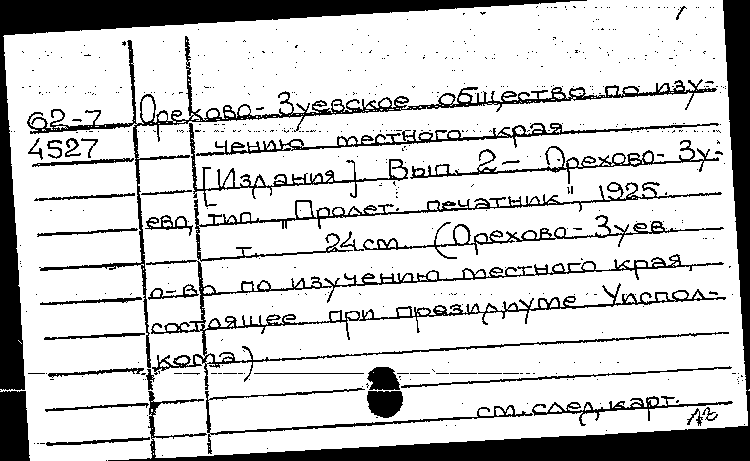 62-7 Орехово-Зуевское общество по изу-
4527 чению местного края
[Издания] Вып. 2- Орехово-Зу-
ево, тип. „Пролет. печатник", 1925.
т. 24см (Орехово-Зуев.
о-во по изучению местного края,
состоящее при президиуме Уиспол-
кома)
см. след. карт.